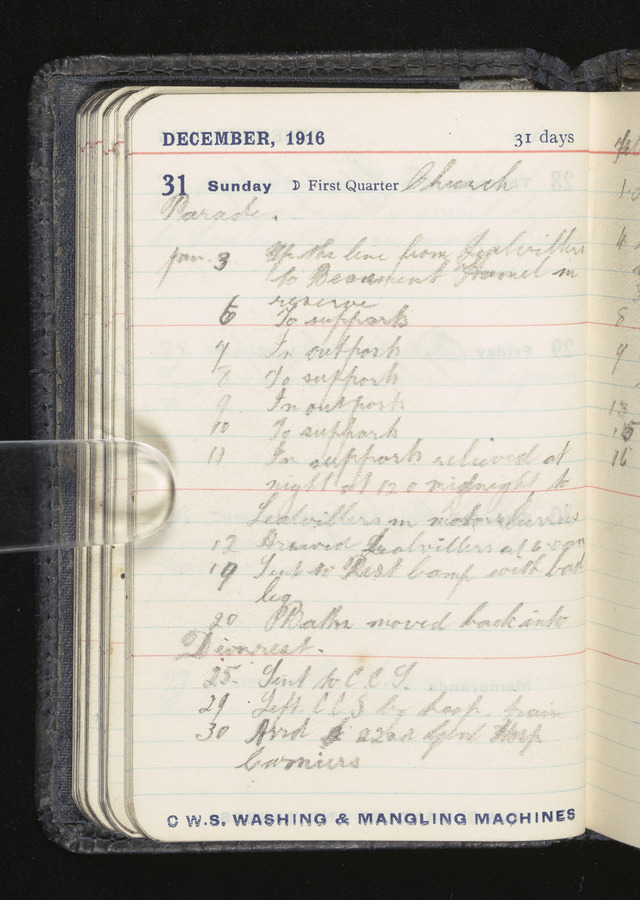 DECEMBER, 1916 31 days
31 Sunday D First Quarter Church
Parade.
Jan. 3 Up the line from Lealvillers
to Beaumont Hamel in
reserve
6 To supports
7 In outposts
8 To supports
9. In outposts
10 To supports
11 In supports relieved at
night at 12 0 midnight to
Lealvillers in motor lorries
12 Arrived Lealvillers at 6
19 Sent to Rest Camp with bad
leg
20 Battn moved back into
Div rest.
25. Sent to C C S.
29 Left C C S by hosp. train
30 Arvd 22nd Genl Hosp
Camiers
C W.S. WASHING & MANGLING MACHINES